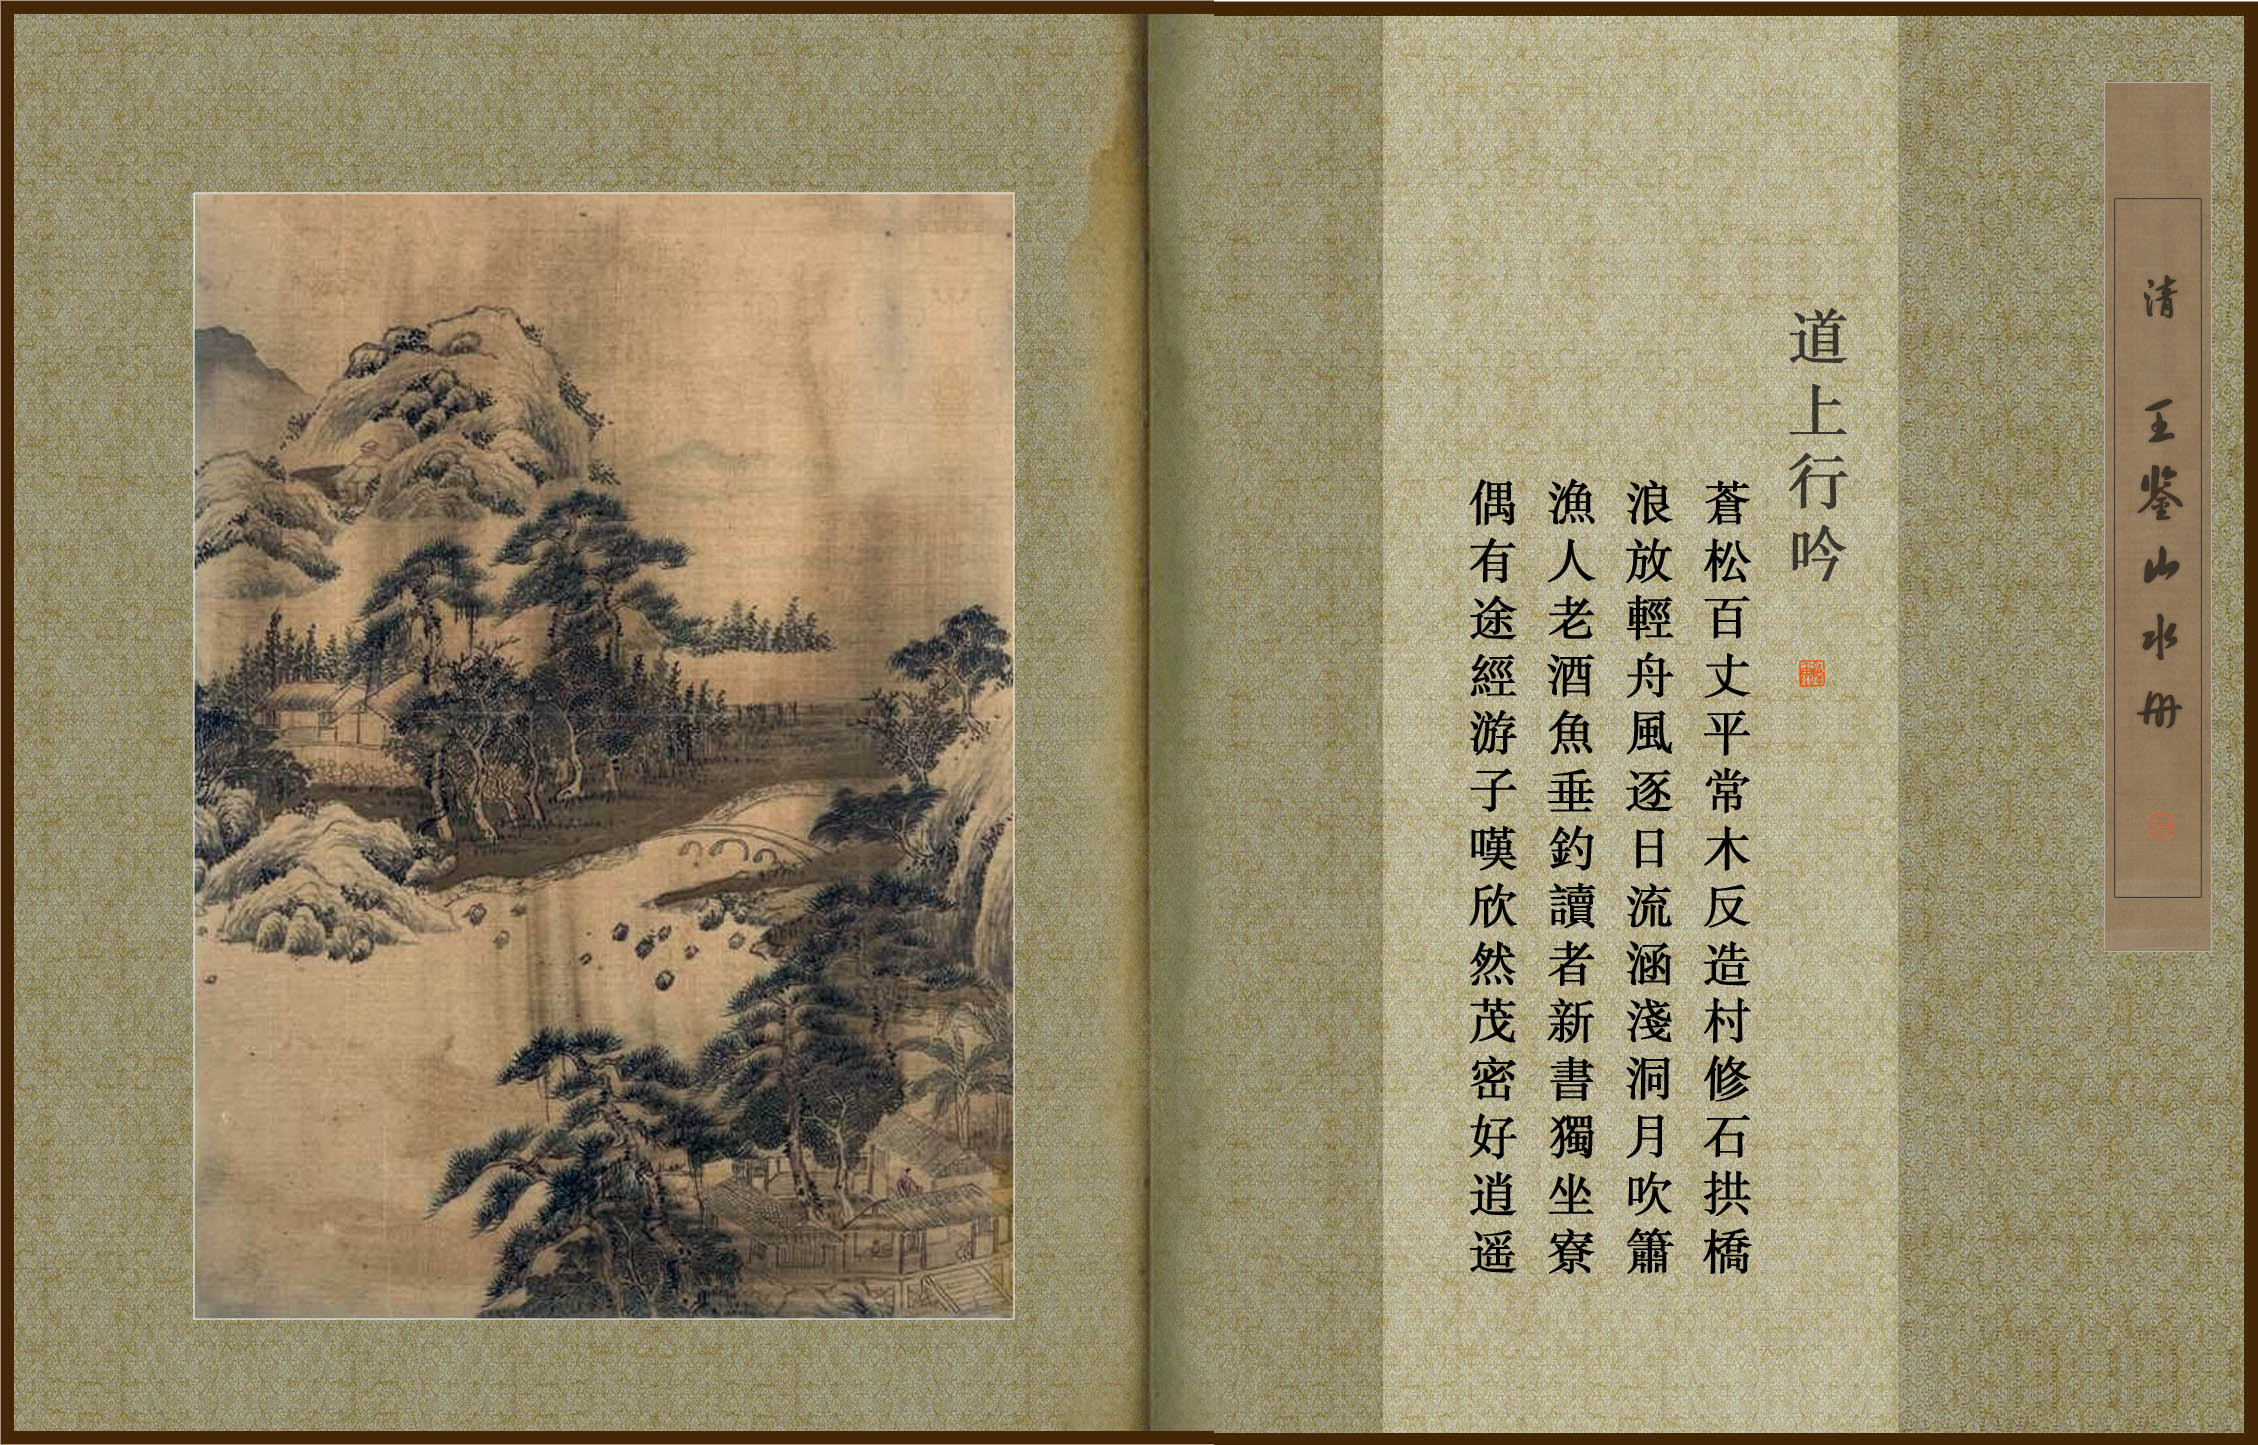 清 王鉴山水册
道上行吟
蒼松百丈平常木反造村修石拱橋
浪放輕舟風逐日流涵淺洞月吹簫
漁人老酒魚垂釣讀者新書獨坐寮
偶有途經游子嘆欣然茂密好逍遥